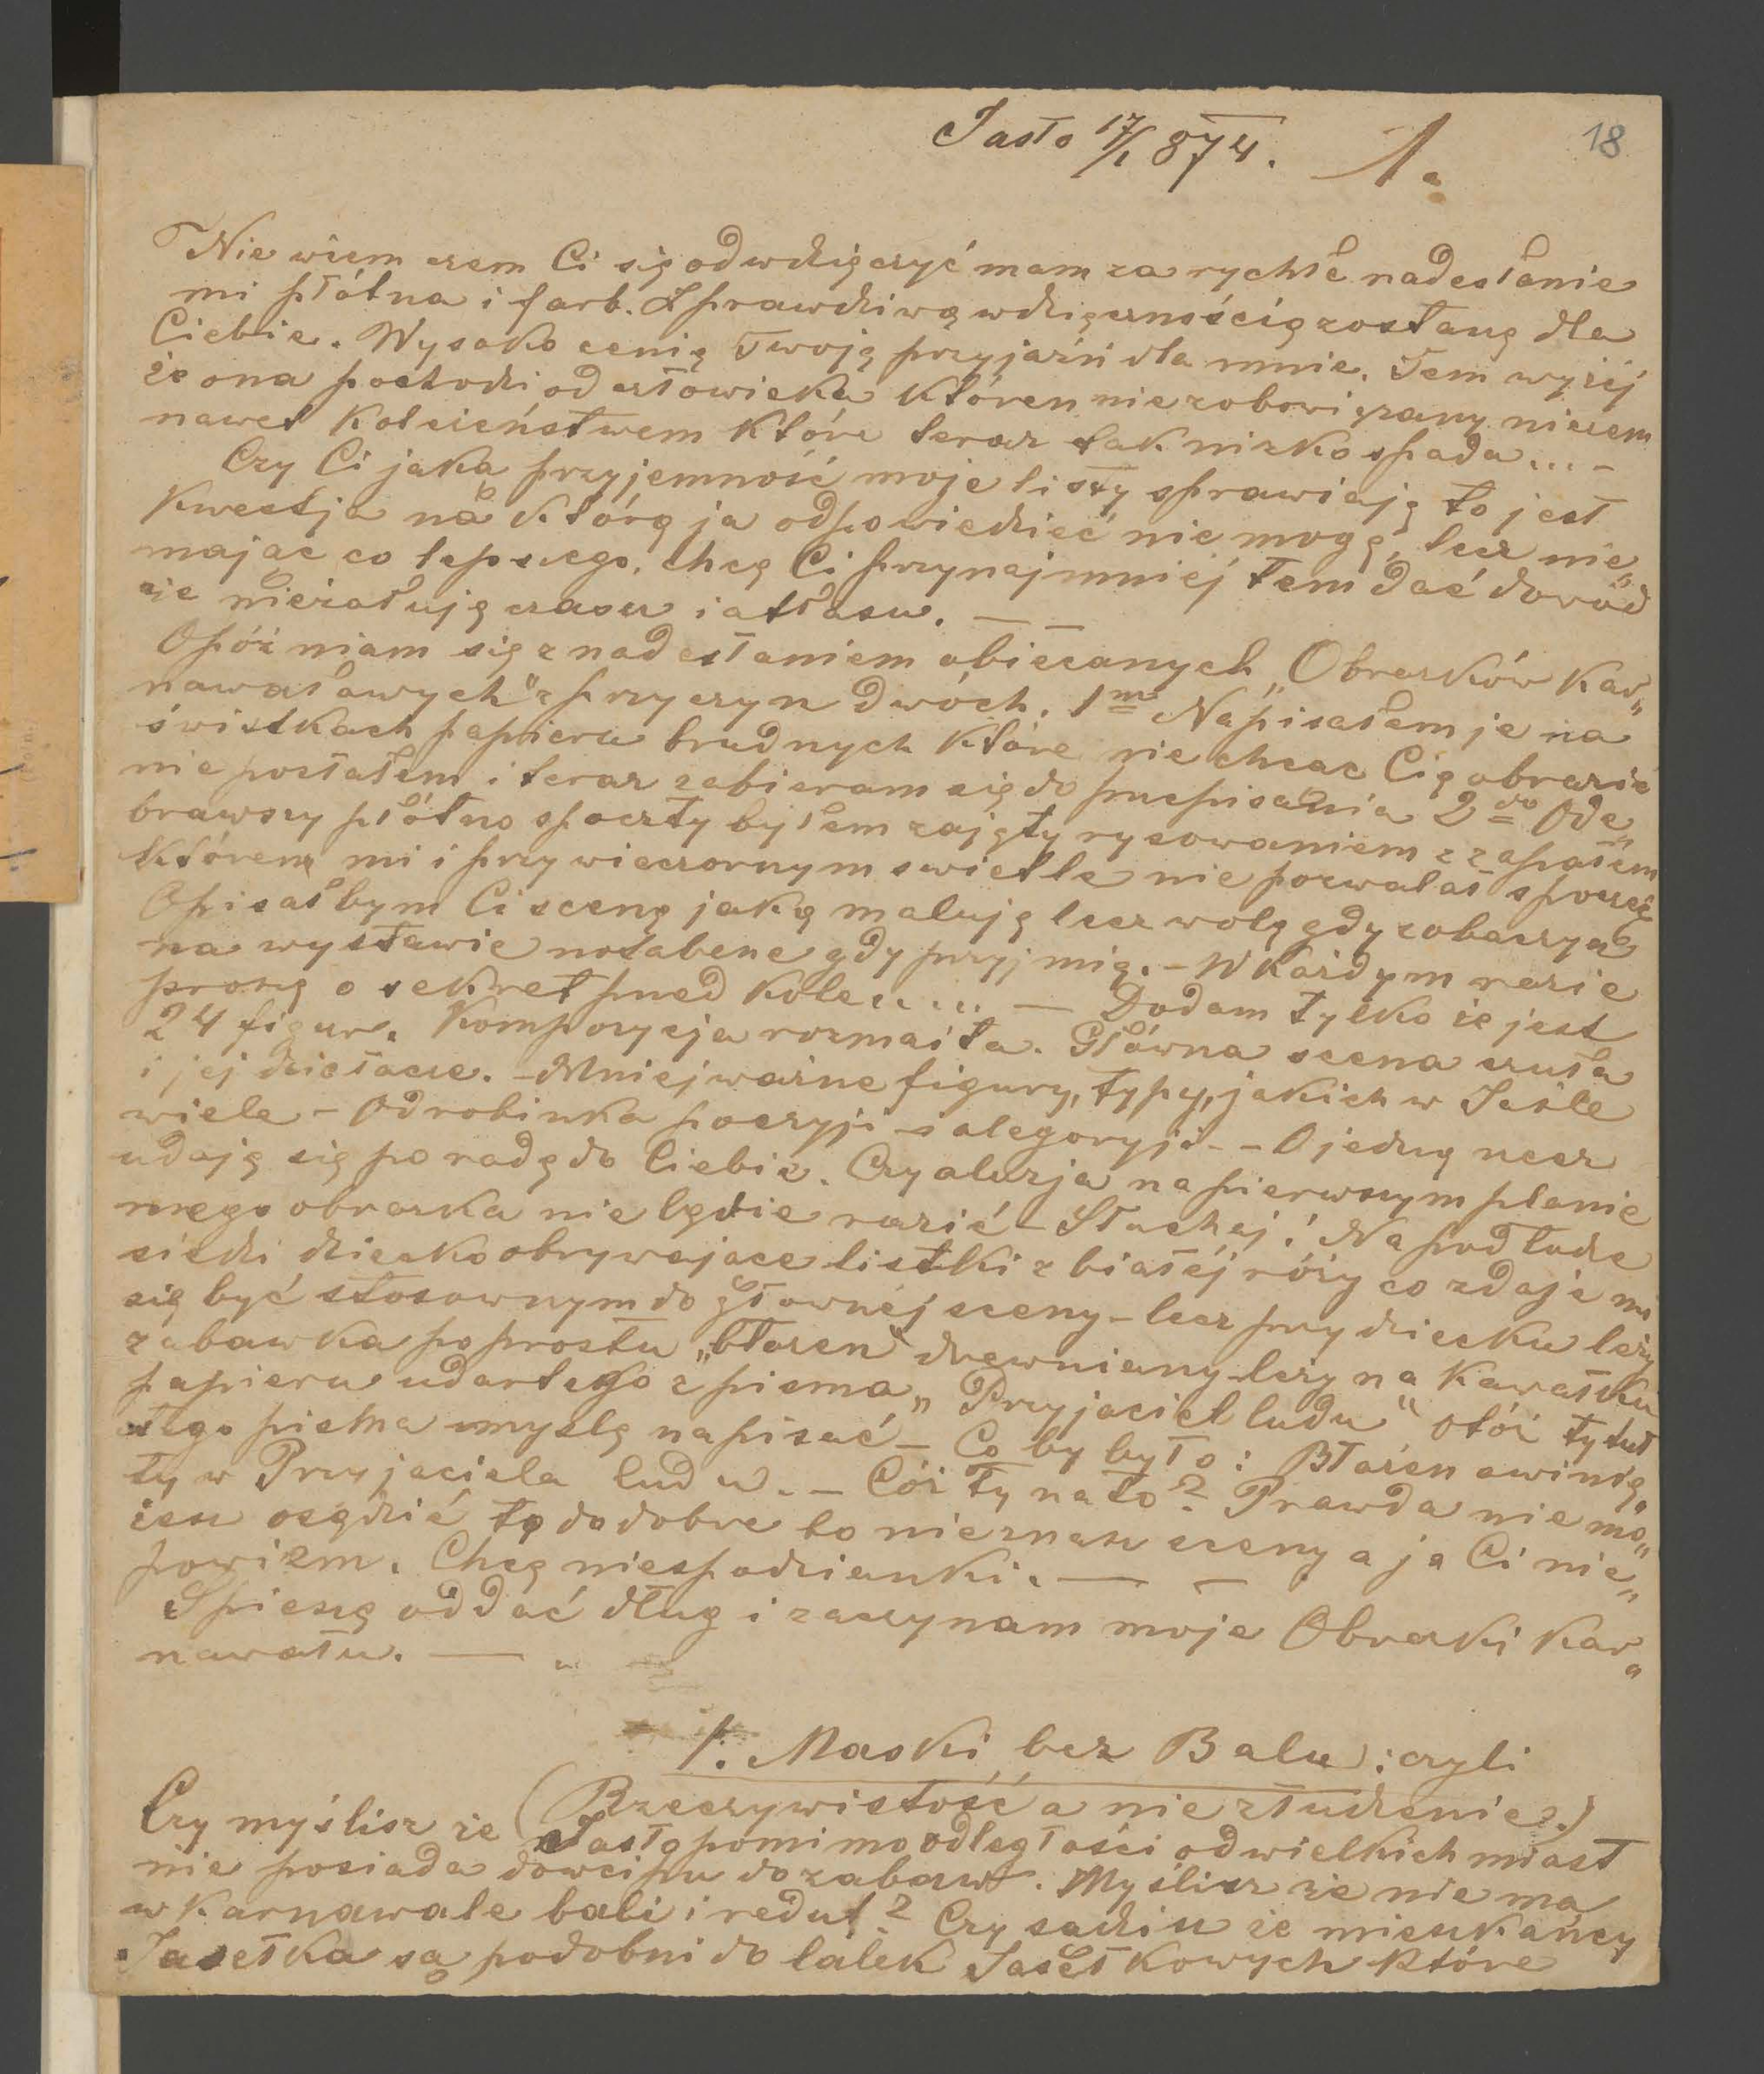 18
Jasło 17/1 874. 1.
Nie wiem czem Ci się odwdzięczyć mam za rychłe nadesłanie
mi płótna i farb. Z prawdziwą wdzięcznością zostanę dla
Ciebie. Wysoko cenię Twoję przyjaźń dla mnie. Tem wyżéj
że ona pochodzi od człowieka któren niezobowiązany niczem
nawet koleżeństwem które teraz tak nizko spada... –
Czy Ci jaką przyjemność moje listy sprawiają to jest
kwestja na którą ja odpowiedzieć nie mogę, lecz nie„
mając co lepszego, chcę Ci przynajmniéj tem dać dowód
że nieżałuję czasu i atłasu. — —
Opóźniam się z nadesłaniem obiecanych „Obrazków kar„
nawałowych" z przyczyn dwóch. 1mo Napisałem je na
świstkach papieru brudnych które nie chcąc Cię obrazić
nie posłałem i teraz zabieram się do przepisania 2do Ode„
brawszy płótno s poczty byłem zajęty rysowaniem z zapałem
którem mi i przy wieczornym swietle nie pozwalał spocząć
Opisałbym Ci scenę jaką maluję lecz wolę gdy zobaczysz
na wystawie notabene gdy przyjmią. – W każdym razie
proszę o sekret przed kole...... — Dodam tylko że jest
24 figur. Kompozycja rozmaita. Główna scena czuła
i jej działacze. – Mniej ważne figury, typy, jakich w Jaśle
wiele – Odrobinka poezyji i alegoryji. – O jednę rzecz
udaję się po radę do Ciebie. Czy aluzja na pierwszym planie
mego obrazka nie będzie razić – Słuchaj! Na podłodze
siedzi dziecko obrywające listki z białéj róży co zdaje mi
się być stosownym do głownéj sceny – lecz przy dziecku leży
zabawka poprostu „błazen" drewniany leży na kawałku
papieru udartego z pisma „Przyjaciel ludu" otóż tytuł
tego pisma myslę napisać – Co by było: Błazen owinię„
ty w Przyjaciela ludu. – Cóż Ty na to? Prawda nie mo„
żesz osądzić to dodobre bo nieznasz sceny a ja Ci nie„
powiem. Chcę niespodzianki. — —
Spieszę oddać dług i zaczynam moje Obrazki kar„
nawału. —
1. Maski bez Balu: czyli
(Rzeczywistość a nie złudzenie.)
Czy myślisz że Jasło pomimo odległości od wielkich miast
nie posiada dowcipu do zabaw. Myślisz że nie ma
w Karnawale bali i redut? Czy sadzisz że mieszkańcy
Jasełka są podobni do lalek Jasełkowych które